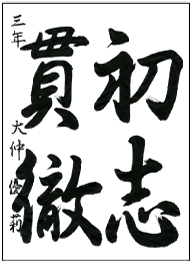 初志
貫徹
三年 大仲優莉